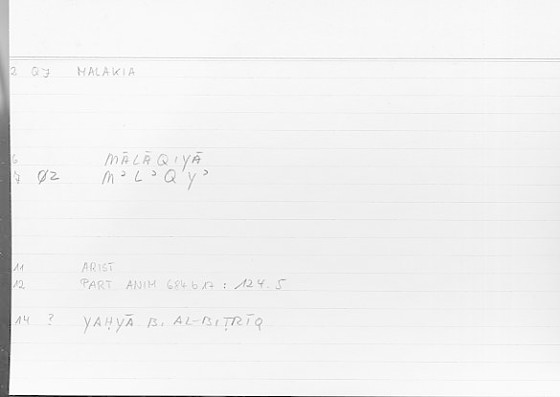 2 07 MALAKIA
6 MĀLĀQIYĀ
7 Ø2 Mʾ Lʾ Q Yʾ
11 ARIST
12 PART ANIM 684b17 : 124.5
14 ? YAḤYĀ B. AL-BIṬRĪQ